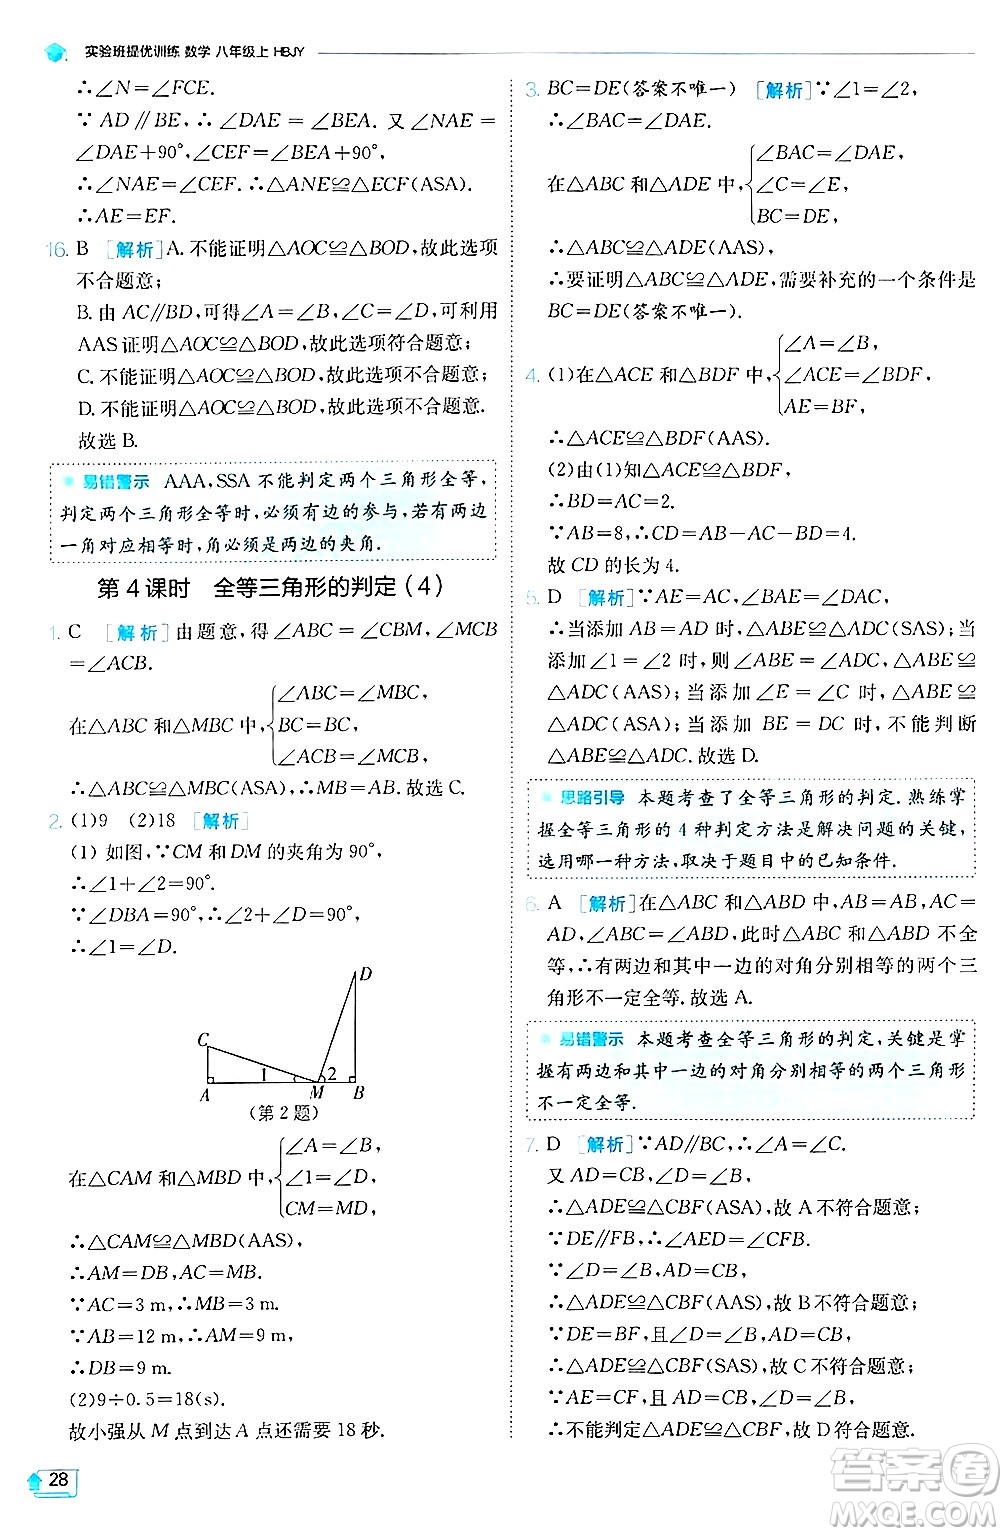 实验班提优训练 数学 八年级上 HBJY
∴∠N=∠FCE.
∵ AD∥BE,∴∠DAE=∠BEA. 又∠NAE=
∠DAE+90°,∠CEF=∠BEA+90°,
∴∠NAE=∠CEF.∴△ANE≌△ECF(ASA).
∴AE=EF.
16. B [解析]A.不能证明△AOC≌△BOD,故此选项
不合题意;
B.由AC∥BD,可得∠A=∠B,∠C=∠D,可利用
AAS证明△AOC≌△BOD,故此选项符合题意;
C.不能证明△AOC≌△BOD,故此选项不合题意;
D.不能证明△AOC≌△BOD,故此选项不合题意.
故选B.
易错警示 AAA,SSA不能判定两个三角形全等,
判定两个三角形全等时,必须有边的参与,若有两边
一角对应相等时,角必须是两边的夹角.
第4课时 全等三角形的判定(4)
1. C [解析]由题意,得∠ABC=∠CBM,∠MCB
=∠ACB.
在△ABC和△MBC中,{∠ABC=∠MBC,
BC=BC,
∠ACB=∠MCB,
∴△ABC≌△MBC(ASA).∴MB=AB.故选C.
2. (1)9 (2)18 [解析]
(1)如图,∵CM和DM的夹角为90°,
∴∠1+∠2=90°.
∵∠DBA=90°,∴∠2+∠D=90°.
∴∠1=∠D.
D
C
1 2
A M B
(第2题)
在△CAM和△MBD中,{∠A=∠B,
∠1=∠D,
CM=MD,
∴△CAM≌△MBD(AAS).
∴AM=DB,AC=MB.
∵AC=3 m,∴MB=3 m.
∵AB=12 m,∴AM=9 m.
∴DB=9 m.
(2)9÷0.5=18(s).
故小强从M点到达A点还需要18秒.
28
3. BC=DE(答案不唯一) [解析]∵∠1=∠2,
∴∠BAC=∠DAE.
在△ABC和△ADE中,{∠BAC=∠DAE,
∠C=∠E,
BC=DE,
∴△ABC≌△ADE(AAS).
∴要证明△ABC≌△ADE,需要补充的一个条件是
BC=DE(答案不唯一).
4. (1)在△ACE和△BDF中,{∠A=∠B,
∠ACE=∠BDF,
AE=BF,
∴△ACE≌△BDF(AAS).
(2)由(1)知△ACE≌△BDF,
∴BD=AC=2.
∵AB=8,∴CD=AB-AC-BD=4.
故CD的长为4.
5. D [解析]∵AE=AC,∠BAE=∠DAC,
∴当添加AB=AD时,△ABE≌△ADC(SAS);当
添加∠1=∠2时,则∠B=∠ADC,△ABE≌
△ADC(AAS);当添加∠E=∠C时,△ABE≌
△ADC(ASA);当添加BE=DC时,不能判断
△ABE≌△ADC.故选D.
思路引导 本题考查了全等三角形的判定.熟练掌
握全等三角形的4种判定方法是解决问题的关键,
选用哪一种方法,取决于题目中的已知条件.
6. A [解析]在△ABC和△ABD中,AB=AB,AC=
AD,∠ABC=∠ABD,此时△ABC和△ABD不全
等,∴有两边和其中一边的对角分别相等的两个三
角形不一定全等.故选A.
易错警示 本题考查全等三角形的判定,关键是掌
握有两边和其中一边的对角分别相等的两个三角形
不一定全等.
7. D [解析]∵AD∥BC,∴∠A=∠C.
又AD=CB,∠D=∠B,
∴△ADE≌△CBF(ASA),故A不符合题意;
∵DE∥FB,∴∠AED=∠CFB.
又∠A=∠C,AD=CB,
∴△ADE≌△CBF(AAS),故B不符合题意;
∵DE=BF,且∠D=∠B,AD=CB,
∴△ADE≌△CBF(SAS),故C不符合题意;
∵AE=CF,且∠D=∠B,AD=CB,
∴不能判定△ADE≌△CBF,故D符合题意.
答案圈
MXQE.COM